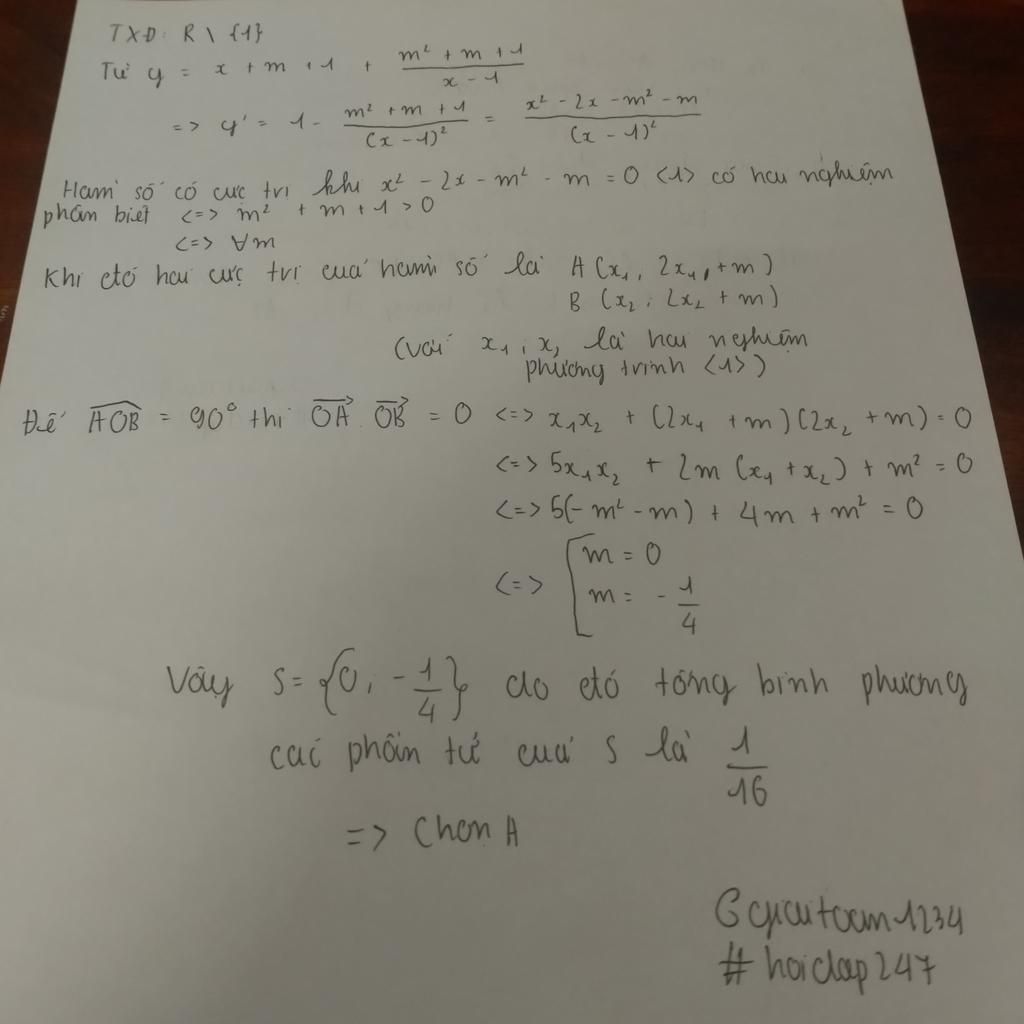 TXĐ: R \ {1}
Từ y = x + m + 1 + (m² + m + 1)/(x - 1)
=> y' = 1 - (m² + m + 1)/(x - 1)² = (x² - 2x - m² - m)/(x - 1)²
Hàm số có cực trị khi x² - 2x - m² - m = 0 <1> có hai nghiệm
phân biệt <=> m² + m + 1 > 0
<=> ∀m
Khi đó hai cực trị của hàm số là A (x₁, 2x₁, + m)
B (x₂; 2x₂ + m)
(với x₁; x, là hai nghiệm
phương trình <1>)
Để AOB = 90° thì OA . OB = 0 <=> x₁x₂ + (2x₁ + m)(2x₂ + m) = 0
<=> 5x₁x₂ + 2m (x₁ + x₂) + m² = 0
<=> 5(-m² - m) + 4m + m² = 0
<=> [ m = 0
m = - 1/4
Vậy S = {0, - 1/4} do đó tổng bình phương
các phần tử của S là 1/16
=> Chọn A
Ggiaitoan1234
# hoidap247